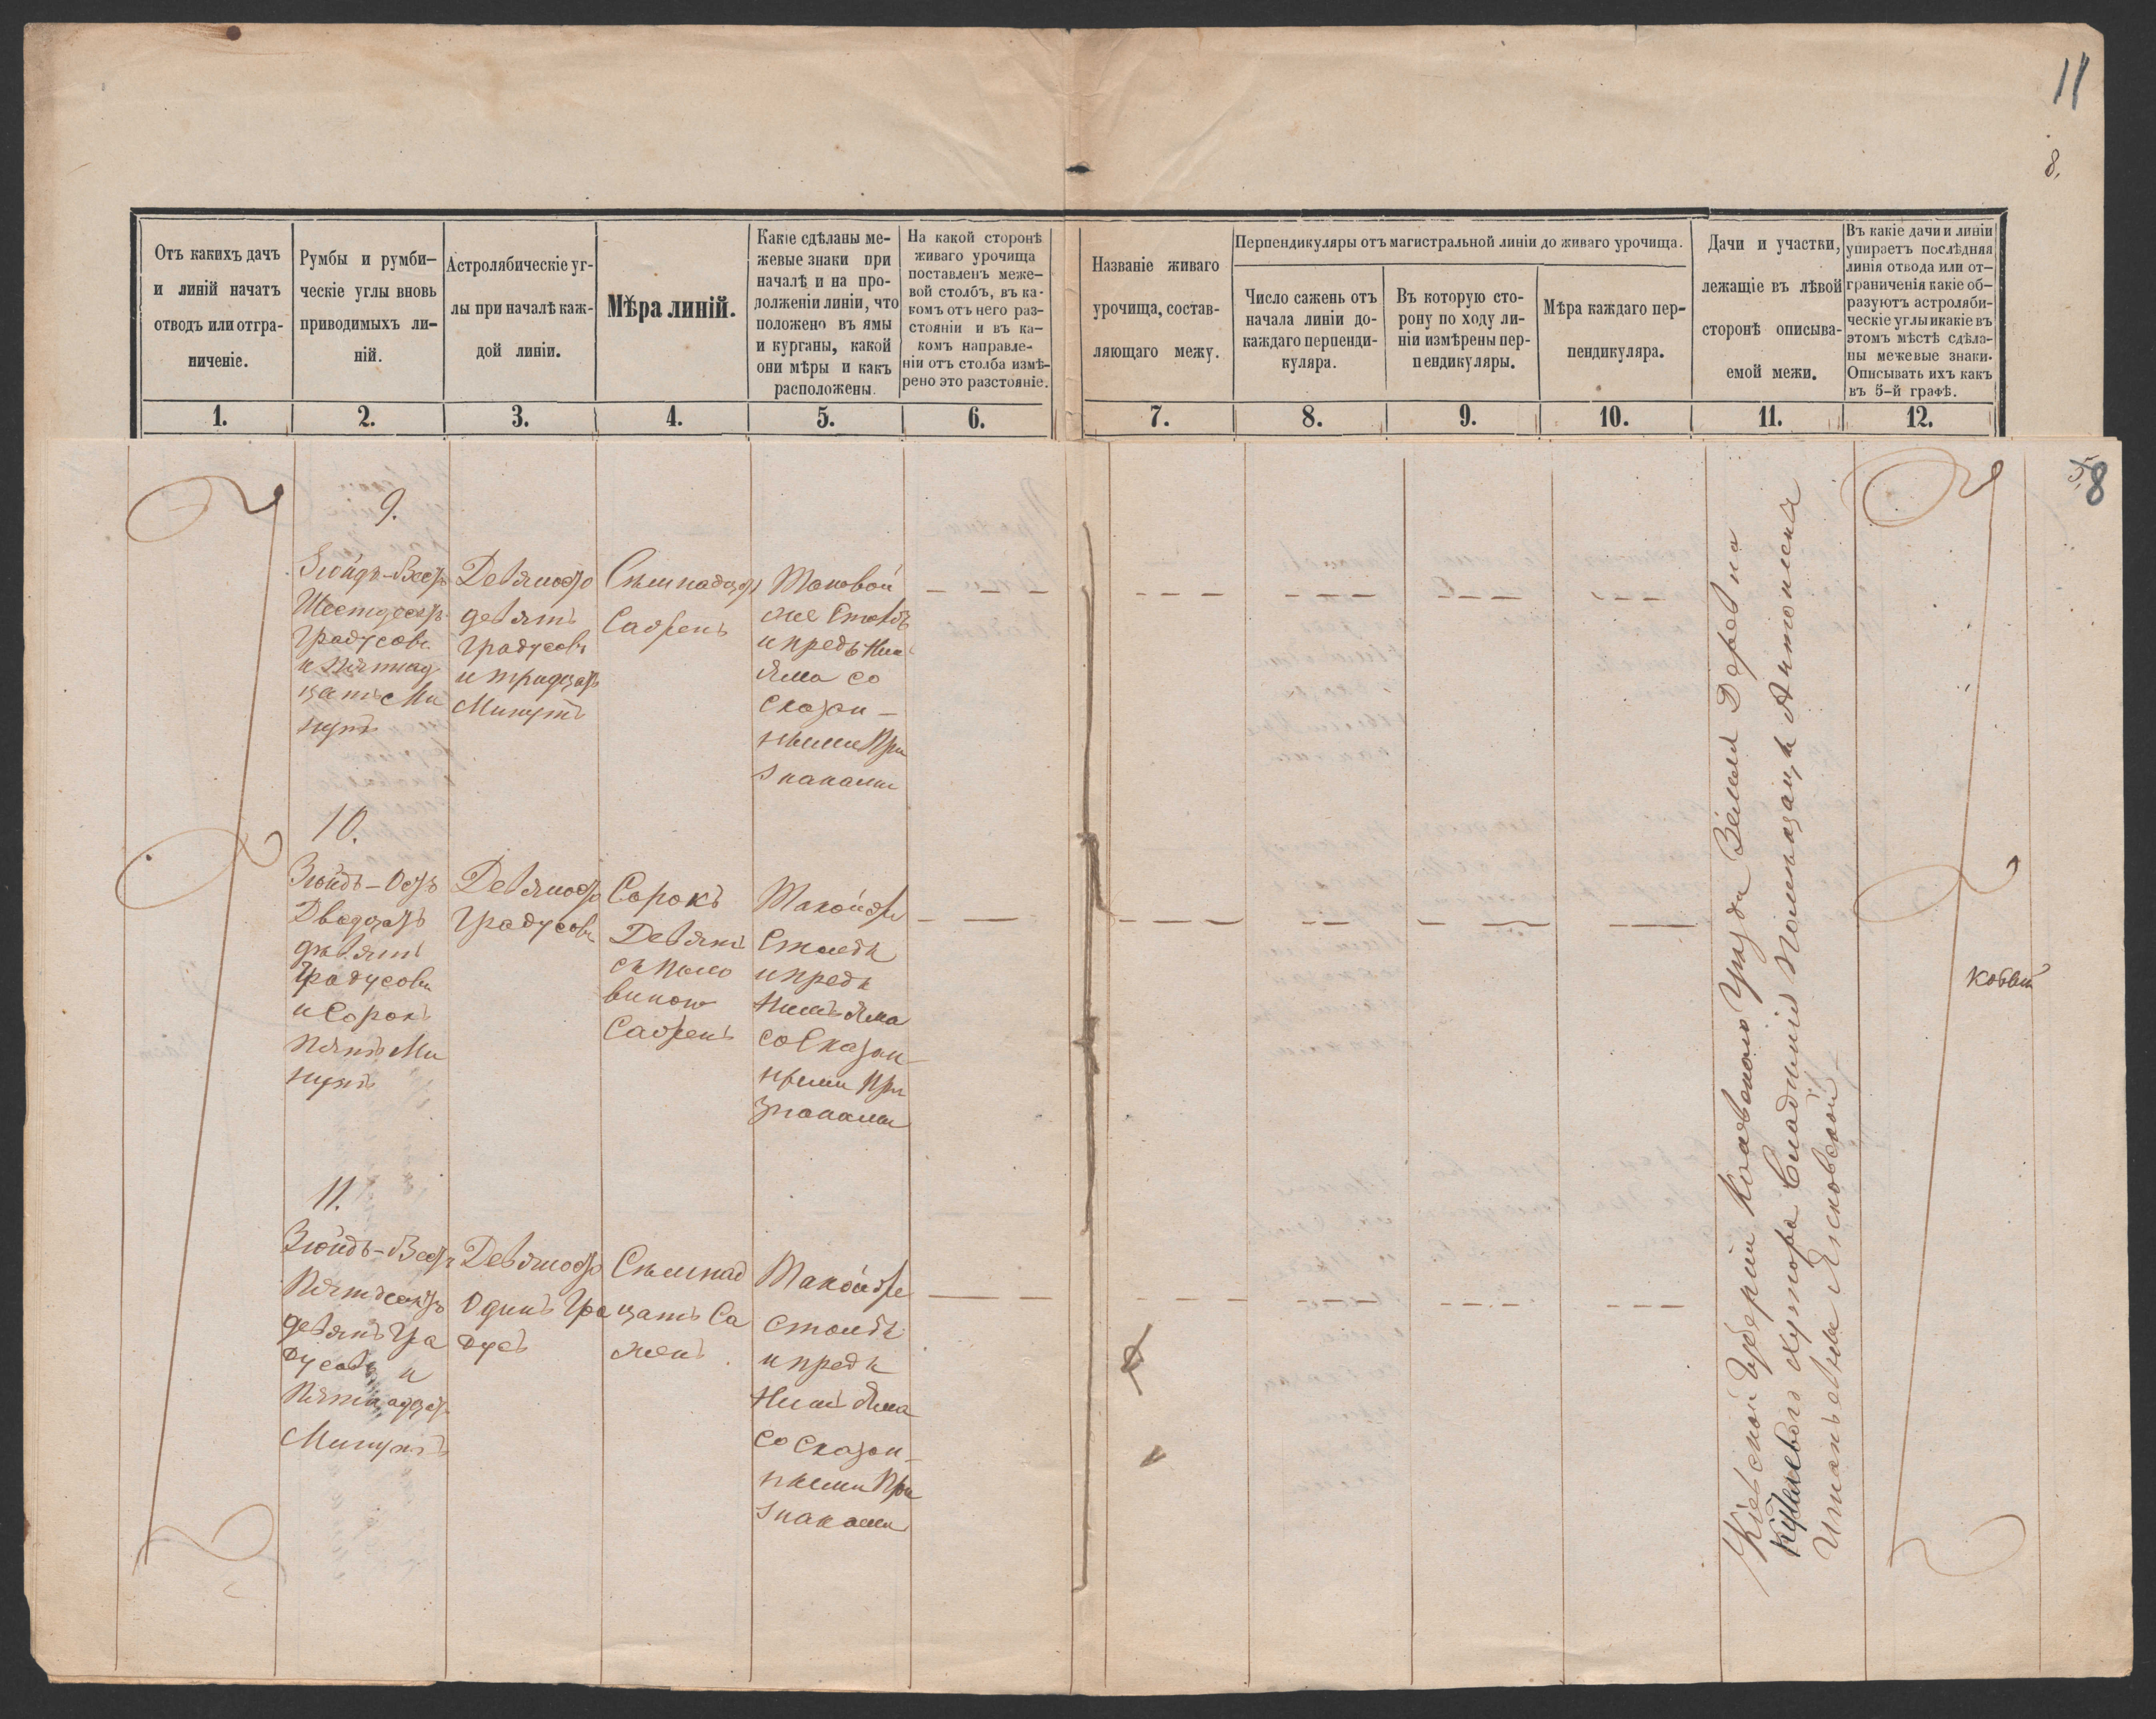 11
8.
Отъ какихъ дачъ
и линій начатъ
отводъ или отгра-
ниченіе.
Румбы и румби-
ческіе углы вновь
приводимыхъ ли-
ній.
Астролябическіе уг-
лы при началѣ каж-
дой линіи.
Мѣра линій.
Какіе сдѣланы ме-
жевые знаки при
началѣ и на про-
долженіи линіи, что
положено въ ямы
и курганы, какой
они мѣры и какъ
расположены.
На какой сторонѣ
живаго урочища
поставленъ меже-
вой столбъ, въ ка-
комъ отъ него раз-
стояніи и въ ка-
комъ направле-
ніи отъ столба измѣ-
рено это разстояніе.
Названіе живаго
урочища, состав-
ляющаго межу.
Перпендикуляры отъ магистральной линіи до живаго урочища.
Число сажень отъ
начала линіи до-
каждаго перпенди-
куляра.
Въ которую сто-
рону по ходу ли-
ніи измѣрены пер-
пендикуляры.
Мѣра каждаго пер-
пендикуляра.
Дачи и участки,
лежащіе въ лѣвой
сторонѣ описыва-
емой межи.
Въ какіе дачи и линіи
упираетъ послѣдняя
линія отвода или от-
граниченія какіе об-
разуютъ астроляби-
ческіе углы и какіе въ
этомъ мѣстѣ сдѣла-
ны межевые знаки.
Описывать ихъ какъ
въ 5-й графѣ.
1. 2. 3. 4. 5. 6. 7. 8. 9. 10. 11. 12.
8
9.
Зюйдъ-Вестъ
Шестдесятъ
градусовъ
и пятнад
цать Ми
нутъ
Девяносто
девять
градусовъ
и тридцать
Минутъ
Семнадцать
Сажень
Таковой
же Столбъ
и предъ Ним
яма со
Сказан-
ными При
знаками
10.
Зюйдъ-Остъ
Двадцать
девять
градусовъ
и Сорокъ
пять Ми
нутъ
Девяносто
градусовъ
Сорокъ
Девять
съ поло
виною
Сажень
Такой же
Столбъ
и предъ
Нимъ яма
со Сказан-
ными При
знаками
11.
Зюйдъ-Вестъ
Пятдесятъ
девять Гра
дусовъ и
Пятнадцать
Минутъ
Девяносто
Одинъ Гра
дусъ
Семнад
цать Са
жень
Такой же
Столбъ
и предъ
Нимъ яма
со Сказан-
ными При
знаками
Кіевской Губерніи Кіевскаго Уѣзда Земля Деревни
хутора Владѣнія Помѣщицы Антонины
Игнатьевны Ясновской